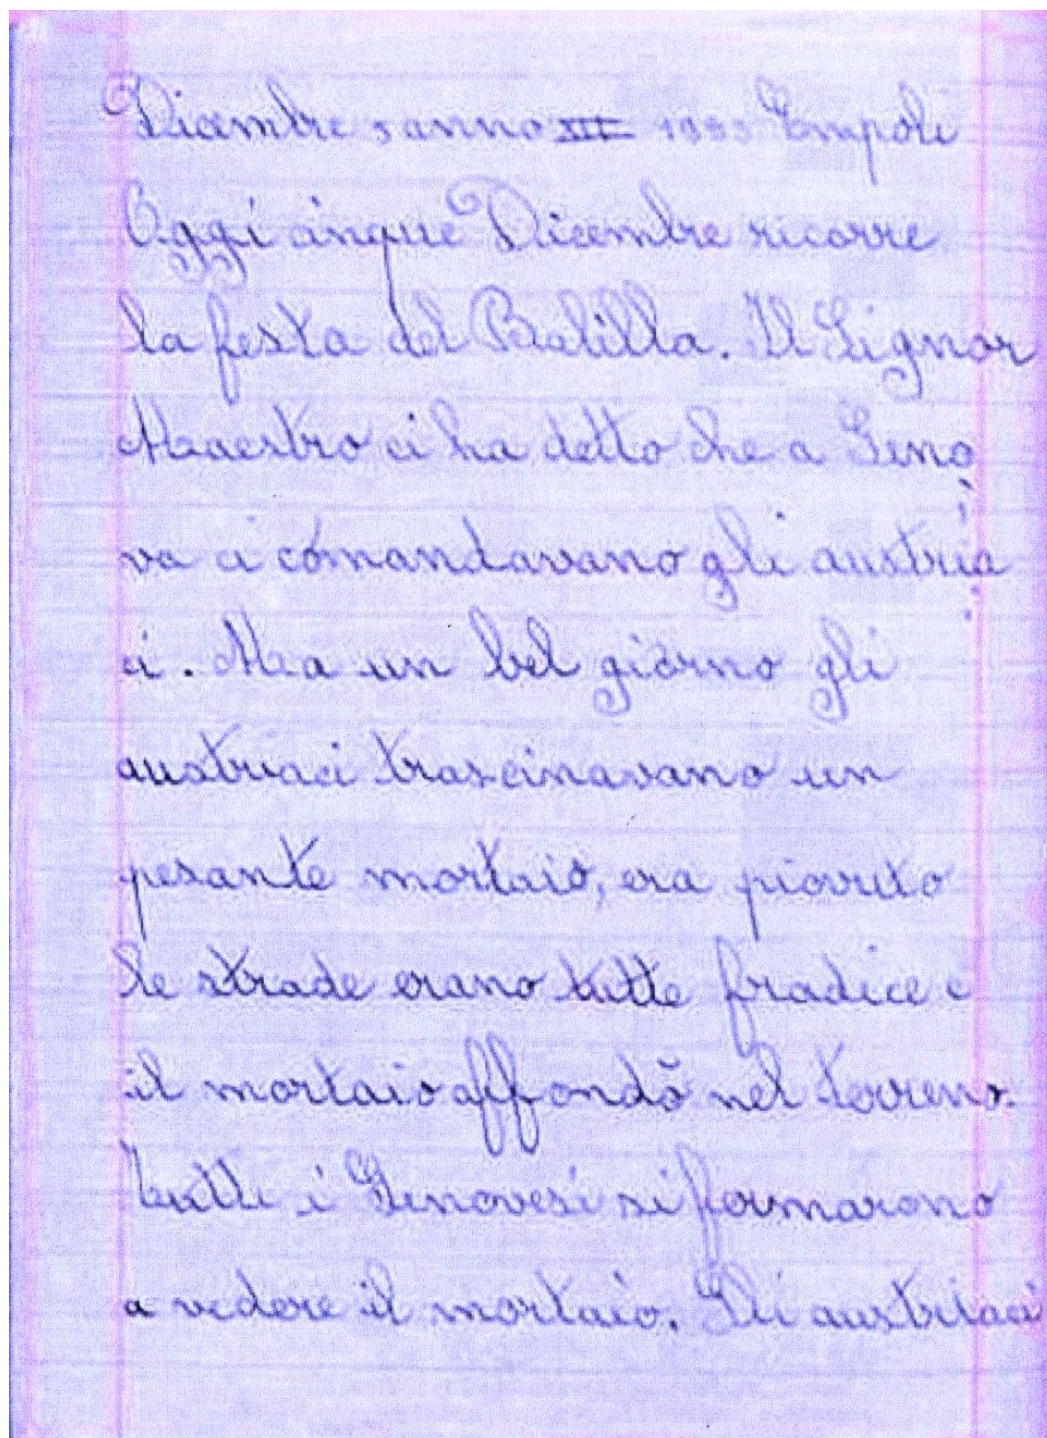 Dicembre 5 anno XIII Empoli
Oggi cinque Dicembre ricorre
la festa del Balilla. Il Signor
Maestro ci ha detto che a Geno
va ci comandavano gli austria
ci. Ma un bel giorno gli
austriaci trascinavano un
pesante mortaio, era piovuto
le strade erano tutte fradice e
il mortaio affondò nel terreno.
Tutti i Genovesi si formarono
a vedere il mortaio. Gli austriaci